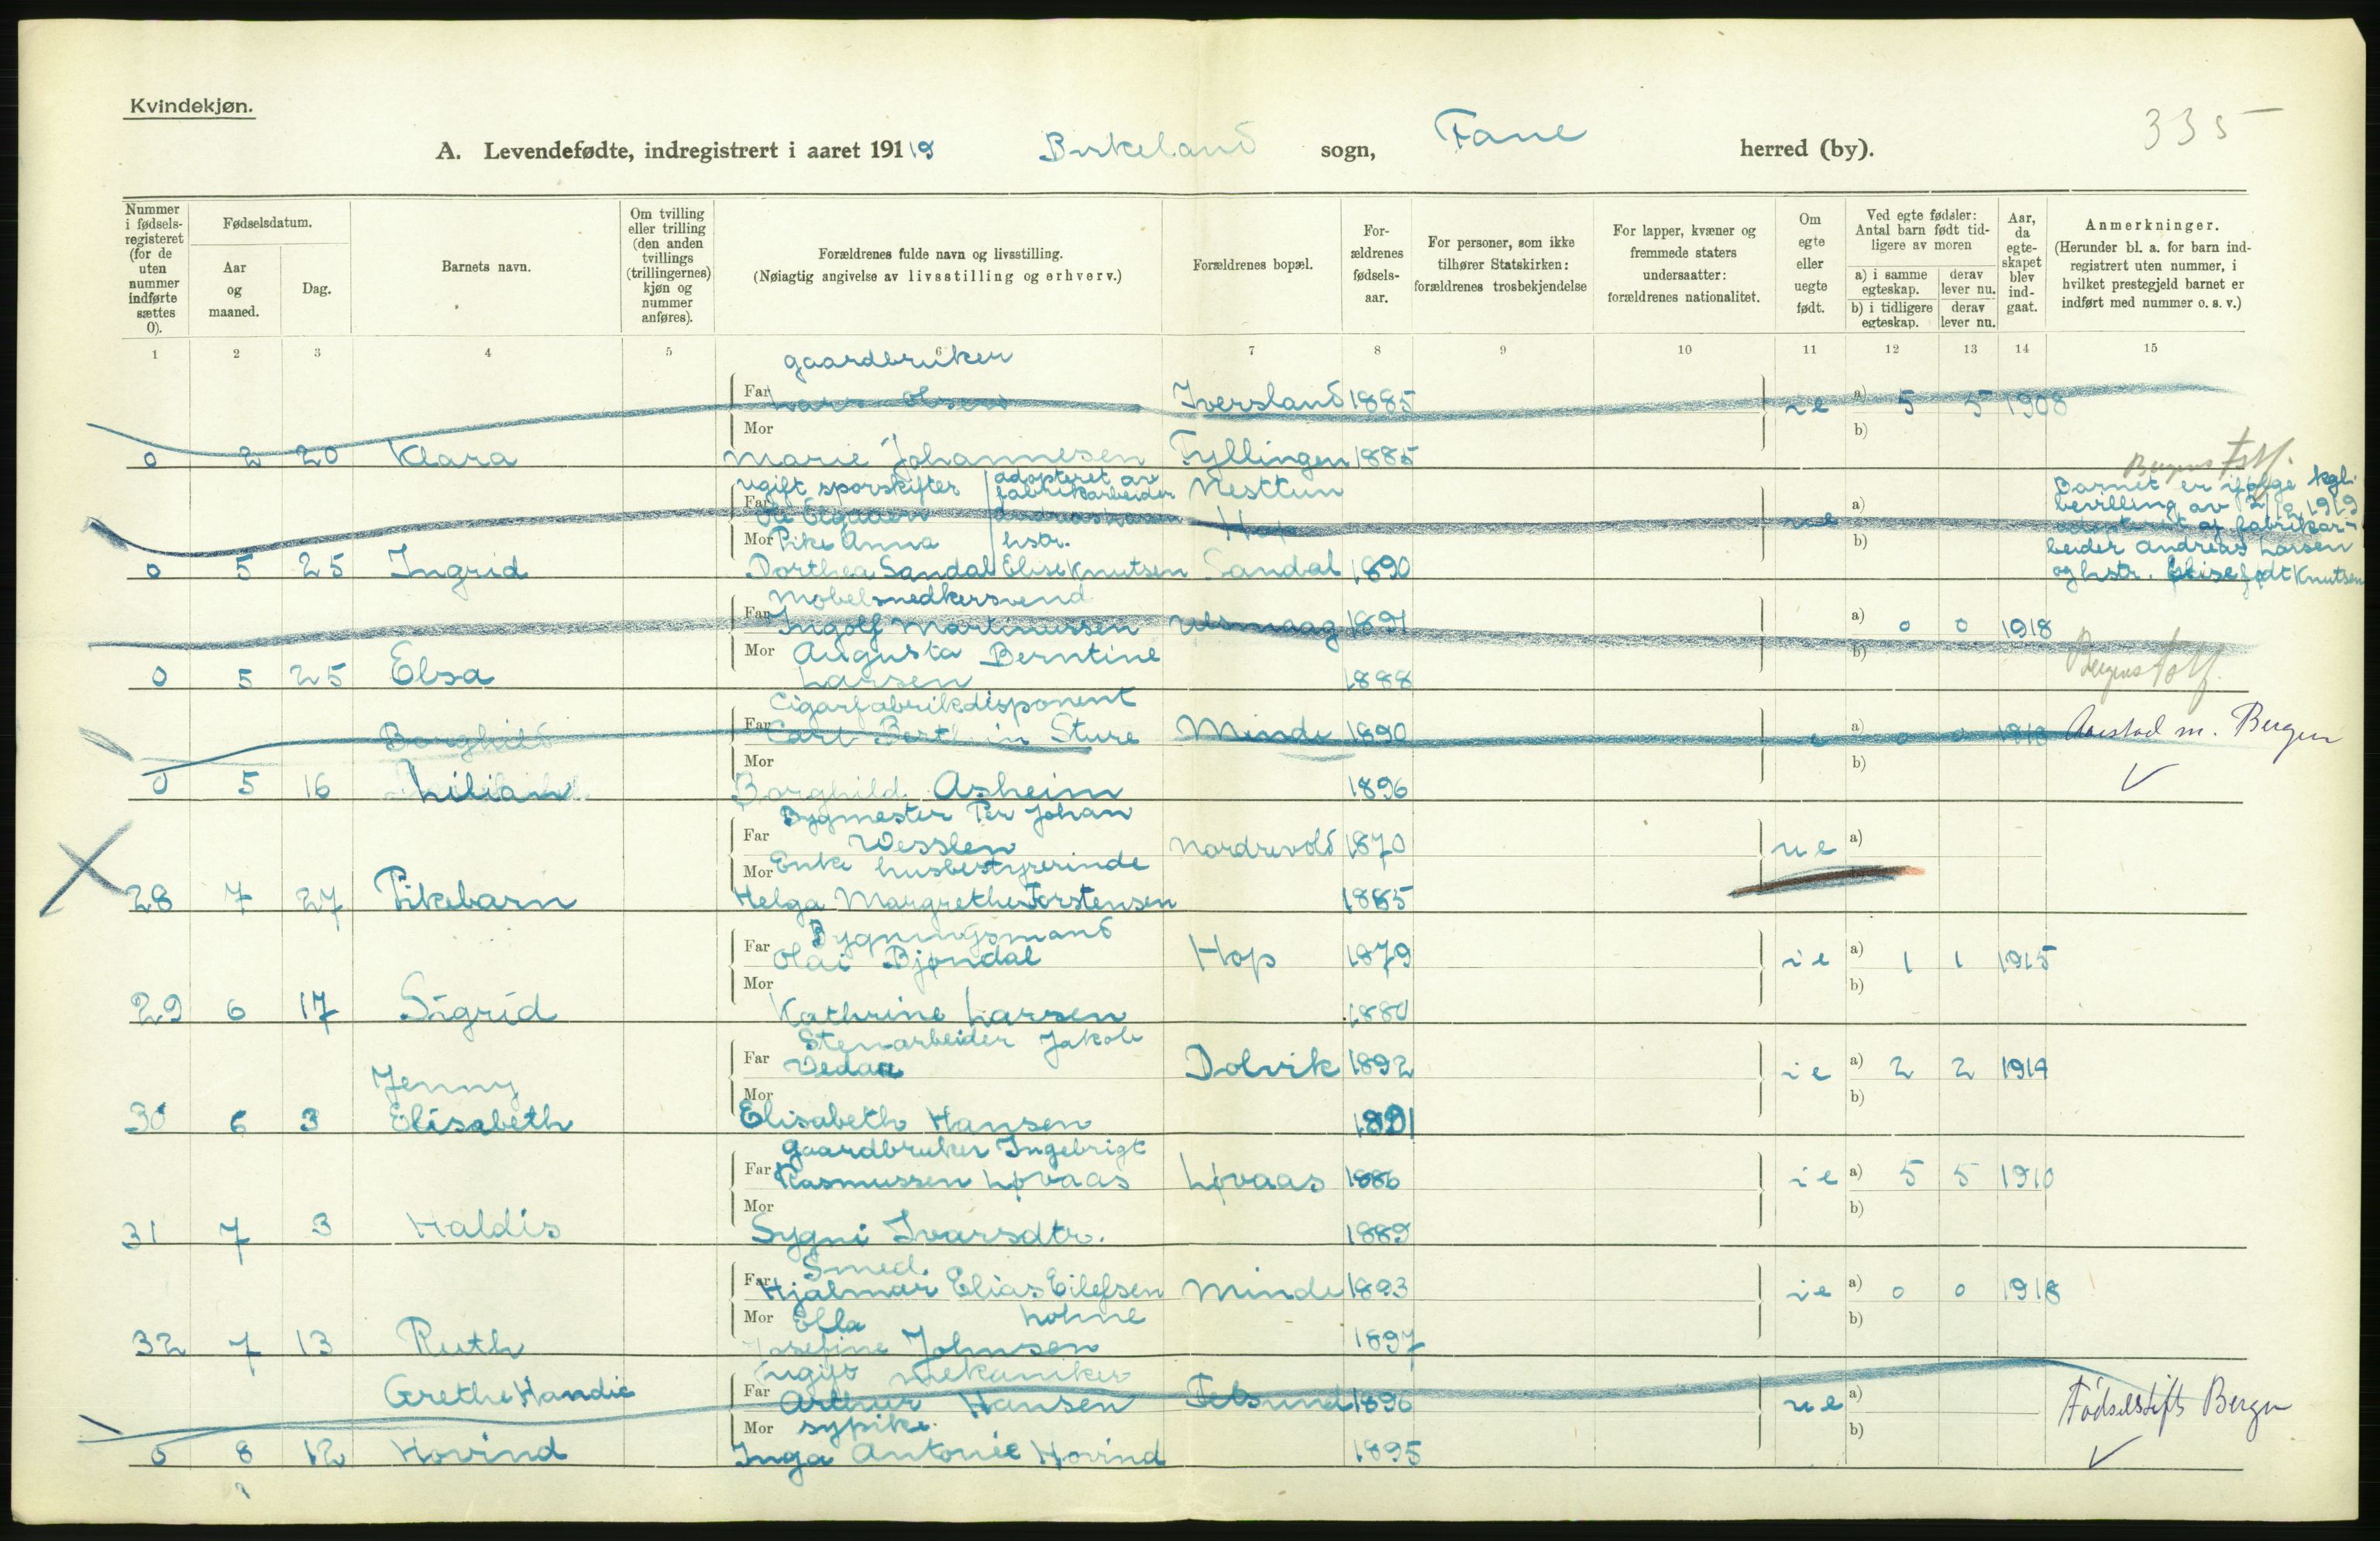 Kvindekjøn.
335
A. Levendefødte, indregistrert i aaret 19119 Birkeland sogn, Fane herred (by).
Nummer i fødsels-registeret (for de uten nummer indførte sættes 0).
Fødselsdatum.
Aar og maaned.
Dag.
Barnets navn.
Om tvilling eller trilling (den anden tvillings (trillingernes) kjøn og nummer anføres).
Forældrenes fulde navn og livsstilling.
(Nøiagtig angivelse av livsstilling og erhverv.)
Forældrenes bopæl.
For-ældrenes fødsels-aar.
For personer, som ikke tilhører Statskirken: forældrenes trosbekjendelse
For lapper, kvæner og fremmede staters undersaatter: forældrenes nationalitet.
Om egte eller uegte født.
Ved egte fødsler: Antal barn født tid-ligere av moren
a) i samme egteskap.
derav lever nu.
b) i tidligere egteskap.
derav lever nu.
Aar, da egte-skapet blev ind-gaat.
Anmerkninger.
(Herunder bl. a. for barn ind-registrert uten nummer, i hvilket prestegjeld barnet er indført med nummer o. s. v.)
1 2 3 4 5 6 7 8 9 10 11 12 13 14 15
gaardbruker
Far Lars Olsen Iversland 1885 ie a) 5 5 1908
Mor b)
0 2 20 Klara Marie Johannesen Fyllingen 1885
Bergens Fstf.
ugift sporskifter adopteret av fabrikarbeider Nesttun
Far Ole Andreas Larsen Hop ue a)
Mor Pike Anna hstr. b)
0 5 25 Ingrid Dorthea Sandal Elise Knutsen Sandal 1890
Barnet er ifølge kgl.
bevilling av 2/12 1919
adopteret af fabrikar-
beider Andreas Larsen
og hstr. Elise født Knutsen
Møbelsnedkersvend
Far Ingolf Martinussen Ulsmaag 1891 a) 0 0 1918
Mor Augusta Berntine b)
0 5 25 Elsa Larsen 1888 Bergens Fstf.
Cigarfabrikdisponent
Borghild Far Carl Berthin Sture Minde 1890 e a) 0 0 1918 Aarstad m. Bergen
Mor b)
0 5 16 Lilian Borghild Asheim 1896
Bygmester Per Johan
Far Wesslen Nordrevold 1870 ue a)
Mor Enke husbestyrerinde b)
28 7 27 Pikebarn Helga Margrethe Torstensen 1885
Bygningsmand
Far Olai Bjøndal Hop 1879 ie a) 1 1 1915
Mor b)
29 6 17 Sigrid Kathrine Larsen 1880
Stenarbeider Jakob
Far Vedaa Dolvik 1892 ie a) 2 2 1914
Jenny Mor b)
30 6 3 Elisabeth Elisabeth Hansen 1891
Gaardbruker Ingebrigt
Far Rasmussen Løvaas Løvaas 1886 ie a) 5 5 1910
Mor b)
31 7 3 Haldis Sygni Ivarsdtr. 1889
Smed.
Far Hjalmar Elias Eilefsen Minde 1893 ie a) 0 0 1918
Mor Ella Lohne b)
32 7 13 Ruth Josefine Johnsen 1897
Ugift mekaniker
Grethe Handie Far Arthur Hansen Fetsund 1896 ue a) Fødselsstift. Bergen
Mor sypike. b)
0 8 12 Hovind Inga Antonie Hovind 1895